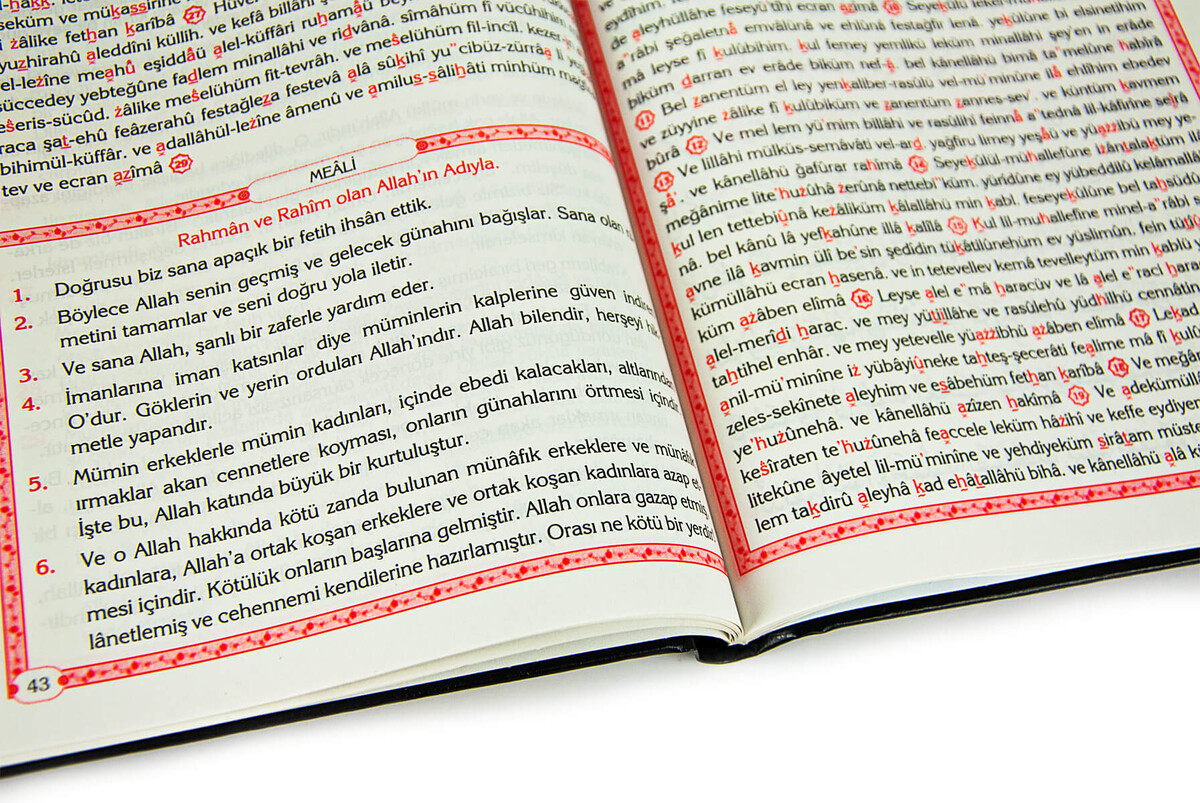 zâlike fethan karîbâ 27 Hüve
yuzhirahû aleddîni küllih. ve kefâ billâhi
vel-lezîne meahû eşiddâü alel-küffâri ruhamâü
süccedey yebteğûne fadlem minallâhi ve ridvânâ. sîmâhüm fî vücûhihim
eseris-sücûd. zâlike meselühüm fit-tevrâh. ve meselühüm fil-incîl. kezer
raca şat-ehû feâzerahû festağleza festevâ alâ sûkihî yu"cibüz-zürrâa
bihimül-küffâr. ve adallâhül-lezîne âmenû ve amilus-sâlihâti minhüm
tev ve ecran azîmâ 29
MEÂLİ
Rahmân ve Rahîm olan Allah'ın Adıyla.
1. Doğrusu biz sana apaçık bir fetih ihsân ettik.
2. Böylece Allah senin geçmiş ve gelecek günahını bağışlar. Sana olan
metini tamamlar ve seni doğru yola iletir.
3. Ve sana Allah, şanlı bir zaferle yardım eder.
4. İmanlarına iman katsınlar diye müminlerin kalplerine güven
O'dur. Göklerin ve yerin orduları Allah'ındır. Allah bilendir, herşeyi
metle yapandır.
5. Mümin erkeklerle mümin kadınları, içinde ebedi kalacakları, altlarından
ırmaklar akan cennetlere koyması, onların günahlarını örtmesi içindir.
İşte bu, Allah katında büyük bir kurtuluştur.
6. Ve o Allah hakkında kötü zanda bulunan münâfık erkeklere ve
kadınlara, Allah'a ortak koşan erkeklere ve ortak koşan kadınlara azap
mesi içindir. Kötülük onların başlarına gelmiştir. Allah onlara gazap etmiş,
lânetlemiş ve cehennemi kendilerine hazırlamıştır. Orası ne kötü bir yerdir!
43
de aleyhüllâhe feseyü'tîhi ecran azîmâ 10 Seyekûlü
a"râbi şeğaletnâ emvâlünâ ve ehlûnâ festağfir lenâ. yekûlûne bi elsinetihim
mâ leyse fî kulûbihim. kul femey yemlikü leküm minallâhi şey'en in erâde
biküm darran ev erâde biküm nef-â. bel kânellâhü bimâ ta"melûne habîrâ
11 Bel zanentüm el ley yenkaliber-rasûlü vel-mü'minûne ilâ ehlîhim ebedev
ve züyyine zâlike fî kulûbiküm ve zanentüm zannes-sev'. ve küntüm kavmem
bûrâ 12 Ve mel lem yü'mim billâhi ve rasûlihî feinnâ a'tednâ lil-kâfirîne seîrâ
13 Ve lillâhi mülküs-semâvâti vel-ard. yağfiru limey yeşâü ve yüazzibü mey ye-
şâ'. ve kânellâhü ğafûrar rahîmâ 14 Seyekûlül-mühallefûne izântalaktüm
meğânime lite'huzûhâ zerûnâ nettebi"küm. yürîdûne ey yübeddilû kelâmallâh
kul len tettebiûnâ kezâliküm kâlallâhü min kabl. feseyekûlûne bel tahsüdû
nâ. bel kânû lâ yefkahûne illâ kalîlâ 15 Kul lil-muhallefîne minel-a"râbi
avne ilâ kavmin ülî be'sin şedîdin tükâtilûnehüm ev yüslimûn. fein tütîû
kümüllâhü ecran hasenâ. ve in tetevellev kemâ tevelleytüm min kablü
küm azâben elîmâ 16 Leyse alel e"mâ haracüv ve lâ alel e"raci harac
alel-merîdi harac. ve mey yütiillâhe ve rasûlehû yüdhilhü cennâtin
tahtihel enhâr. ve mey yetevelle yüazzibhü azâben elîmâ 17 Lekad
anil-mü'minîne iz yübâyiûneke tahteş-şecerâti fealime mâ fî
zeles-sekînete aleyhim ve esâbehüm fethan karîbâ 18 Ve meğâ
ye'huzûnehâ. ve kânellâhü azîzen hakîmâ 19 Ve adekümüll
kesîraten te'huzûnehâ feaccele leküm hâzihî ve keffe eydiye
litekûne âyetel lil-mü'minîne ve yehdiyeküm sırâtam müste
lem takdirû aleyhâ kad ehâtallâhü bihâ. ve kânellâhü alâ